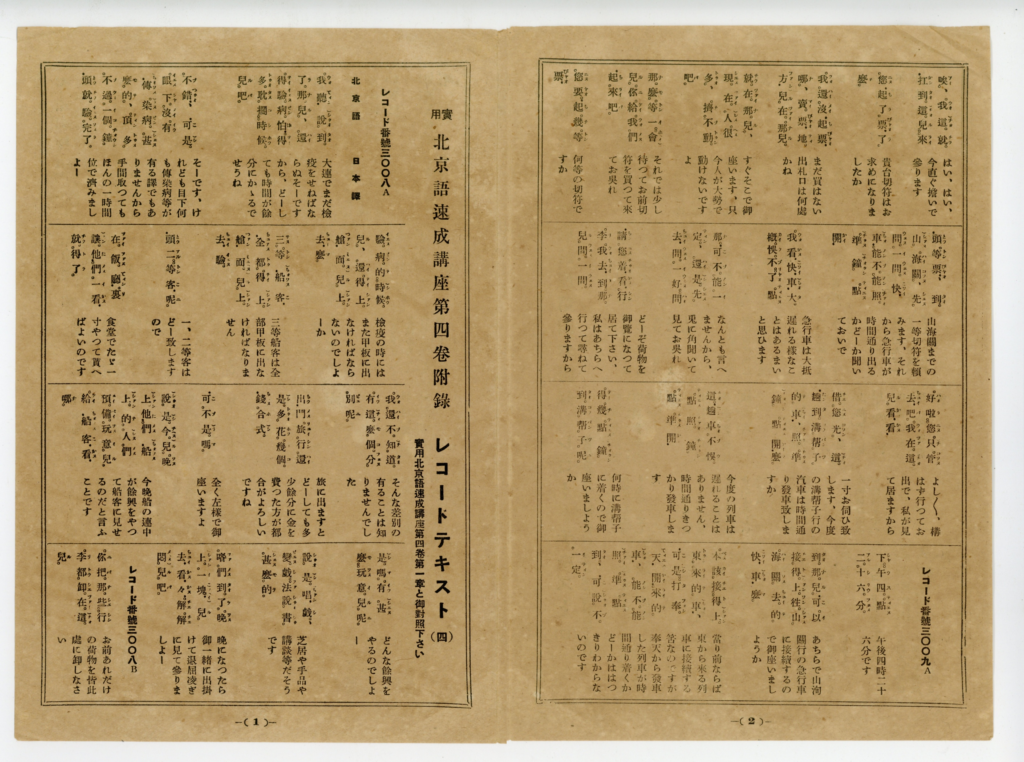 實用 北京語速成講座第四卷附錄 レコードテキスト（四）
實用北京語速成講座第四卷第一章と御對照下さい
レコード番號三〇〇八A
北京語　日本譯
我聽說到
了那兒、還
得驗病、怕得
多耽擱時候
兒吧
大連でまだ檢
疫をせねばな
らぬそーです
から、どーし
ても時間が餘
分にかゝるで
せうね
不錯、可是
眼下沒有
傳染病甚
麼的、頂多
不過一個鐘
頭就驗完了、
そーです、け
れども目下何
も傳染病等が
有る譯でもあ
りませんから
手間取つても
ほんの一時間
位で濟みまし
よー
驗病的時候、
兒、還得上
艙面兒上、
去麼
檢疫の時には
また甲板に出
なければなら
ないのでしょ
ーか
三等船客、
全都得上
艙面兒上、
去驗、
三等船客は全
部甲板に出な
ければなりま
せん
頭二等客呢
一、二等客は
どー致します
ので
在飯廳裏
讓他們一看、
就得了、
食堂でたゞ一
寸やつて貰へ
ばよいのです
我還不知道、
有這麼個分
別呢
そんな差別の
有ることは知
りませんでし
た
出門旅行還
是多花幾個
錢合式、
旅に出ますと
どーしても多
少餘分に金を
費つた方が都
合がよろしい
ですね
可不是嗎
全く左樣で御
座いますよ
說是今兒晚
上他們船
上的人們
預備玩意兒
給船客看、
哪
今晚船の連中
が餘興をやつ
て船客に見せ
るのだと言ふ
ことです
是嗎有甚
麼玩意兒呢
どんな餘興を
やるのでしよ
ー
說是唱戲、
變戲法說書
甚麼的
芝居や手品や
講談等だそう
です
咱們到了晚
上一塊兒
去看々解解
悶兒吧
晚になつたら
御一緖に出掛
けて退屈凌ぎ
に見て參りま
しよー
レコード番號三〇〇八B
你把那些行
李都卸在這
兒
お前あれだけ
の荷物を皆此
處に卸しなさ
い
—(1)—
唉、我這就
扛到這兒來
はい、はい、
今直ぐ擔いで
參ります
您起了票了
麼
貴台切符はお
求めになりま
したか
我還沒起票
哪、賣票地
方兒在那兒、
まだ買はない
出札口は何處
かね
就在那兒、
現在人很
多、擠不動
吧
すぐそこで御
座います、只
今人が大勢で
動けないです
よ
那麼等一會
兒你給我們
起來吧
それでは少し
待つてお前切
符を買つて來
てお吳れ
您要起幾等
票
何等の切符で
すか
頭等票、到
山海關、先
問一問、快
車能不能照
準鐘點
開
山海關までの
一等切符を賴
みます、それ
から急行車が
時間通り出る
かどーか聞い
ておいで
我看快車大
概悞不了點
急行車は大抵
遲れる樣なこ
とはあるまい
と思ひます
那可不能一
定、還是先
去問一好問
なんとも言へ
ませんから、
兎に角聞いて
見てお吳れ
請您看着行
李我去到那
兒問一問、
どーぞ荷物を
御覽になつて
居て下さい、
私はあちらへ
行つて尋ねて
參りますから
好啦您只管
去吧我在這
兒看看、
よし／＼、構
はず行つてお
出で、私が見
て居ますから
借您光、這
趟到溝帮子
的車、照準
鐘點開麼
一寸お伺ひ致
します、今度
の溝帮子行の
汽車は時間通
り發車致しま
すか
這趟車不悞
點照鐘
點準開
今度の列車は
遲れることは
ありません、
時間通りきつ
かり發車しま
す
得幾點鐘
到溝帮子呢
何時に溝帮子
に着くので御
座いましよう
か
下午四點
二十六分、
午後四時二十
六分です
到那兒可以
接得上往山
海關去的
快車麼
あちらで山海
關行の急行車
に接續するの
で御座いまし
ょうか
本該接得上、
東來的車、
可是打奉
天開來的
車、能不能
照準點
到、可說不
一定、
當り前ならば
東から來る列
車に接續する
筈なのですが
奉天から發車
した列車が時
間通り着くか
どーかはつ
きりわからな
いのです
レコード番號三〇〇九A
—(2)—